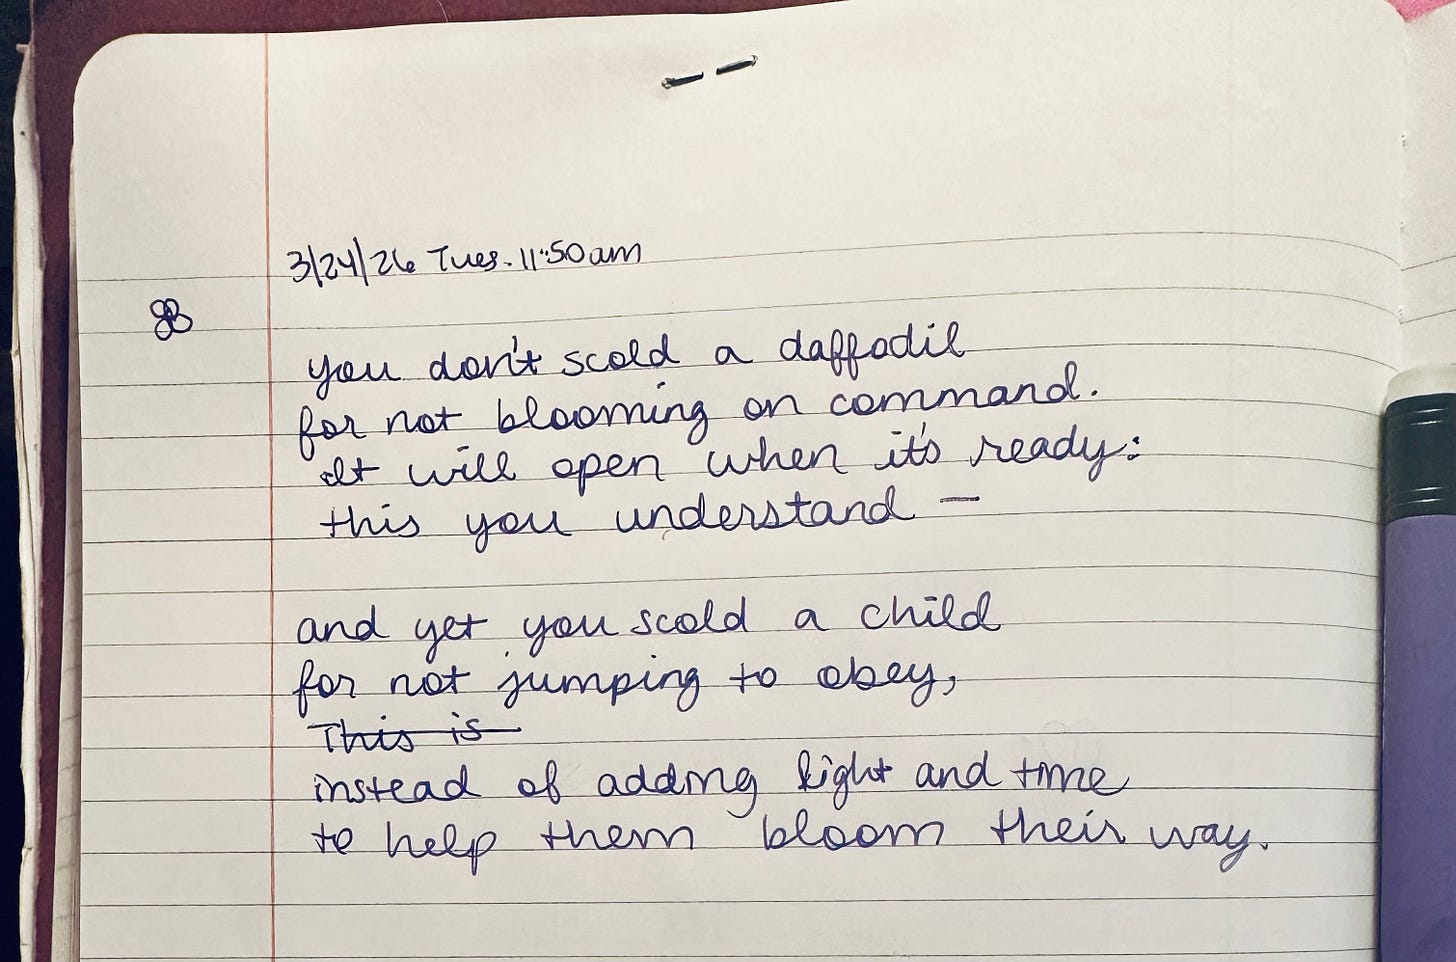 3/24/26 Tues. 11:50am
you don't scold a daffodil
for not blooming on command.
It will open when it's ready:
this you understand —
and yet you scold a child
for not jumping to obey,
This is
instead of adding light and time
to help them bloom their way.